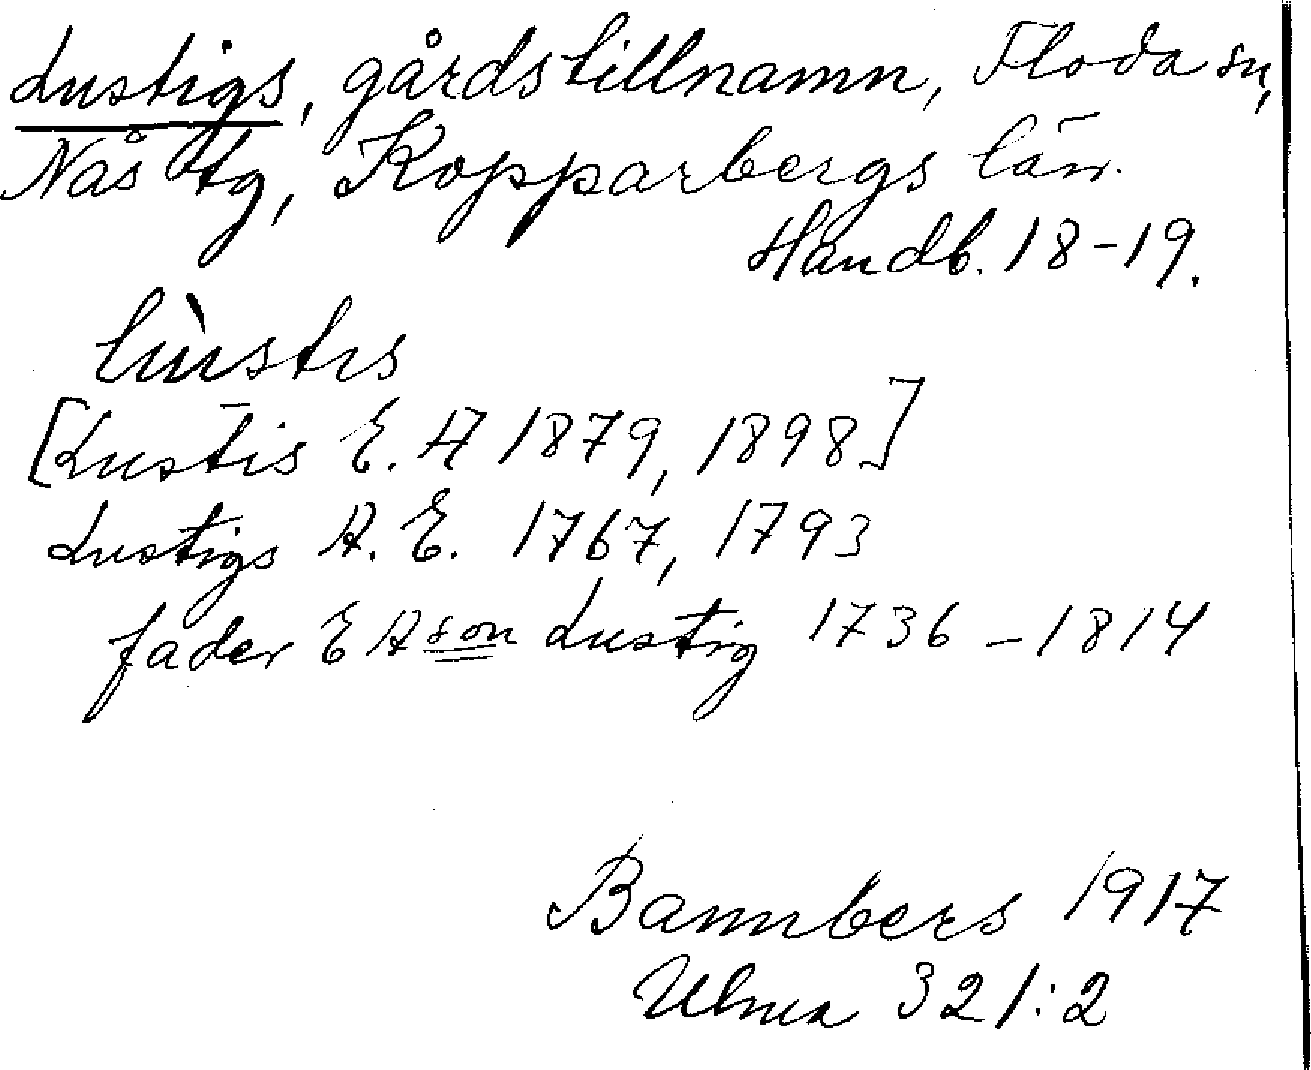 Lustigs, gårdstillnamn, Floda sn,
Nås tg, Kopparbergs län.
Handb. 18-19.
lùstıs
[Lustis E. H 1879, 1898]
Lustigs A. E. 1767, 1793
fader E A son Lustig 1736 - 1814
Bannbers 1917
Ulma 321:2